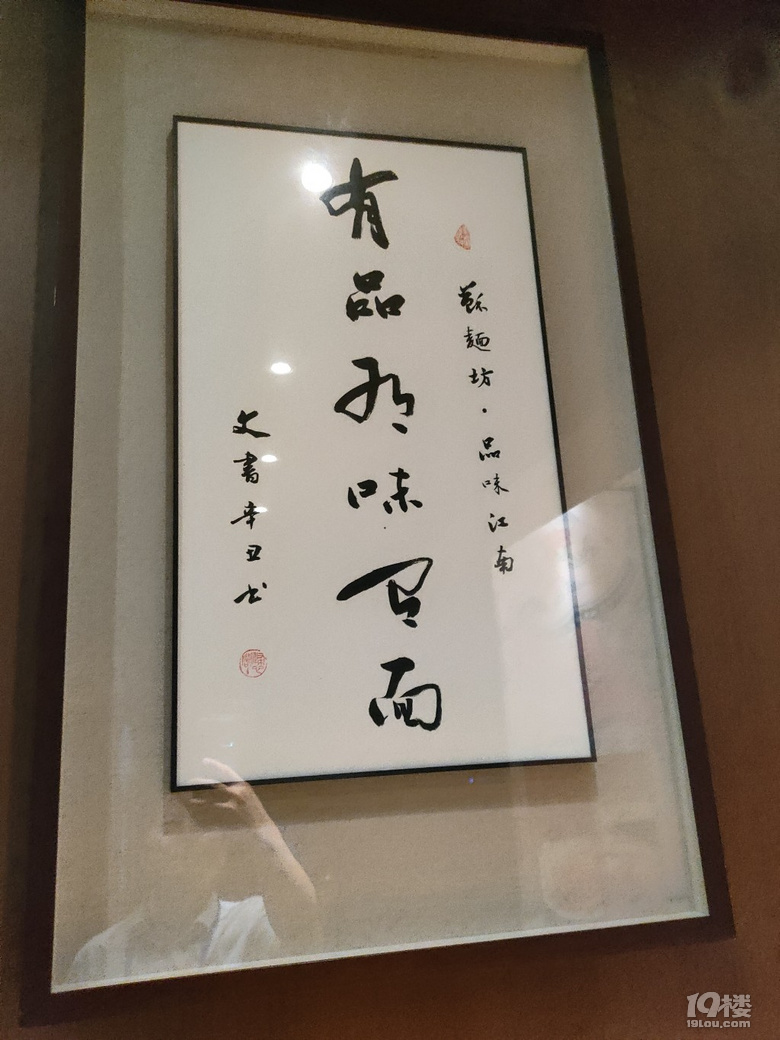 蘇麵坊·品味江南
有品有味有面
文書辛丑书
19楼
19lou.com